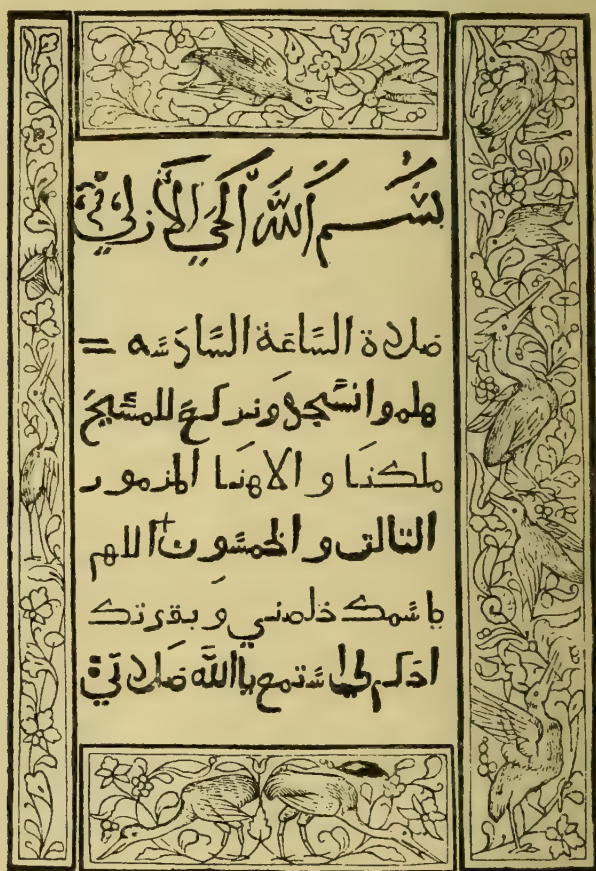 بسم الله الحي الازلي
صلاة الساعة السادسه =
هلموا نسجد ونركع للمسيح
ملكنا و الاهنا المزمور
التالت و الخمسون + اللهم
باسمك خلصني و بقدرتك
احكم لي استمع يا الله صلاتي